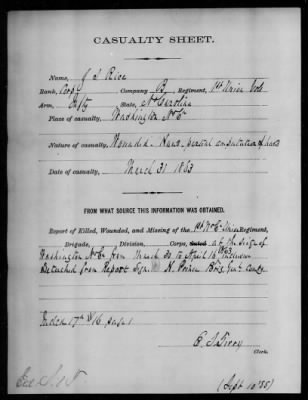 CASUALTY SHEET.
Name, J S Rice
Rank, Corp Company B, Regiment, 1st Union Vols
Arm, Inf State, N Carolina
Place of casualty, Washington N.C.
Nature of casualty, Wounded. Hand, partial amputation of hand
Date of casualty, March 31 1863
FROM WHAT SOURCE THIS INFORMATION WAS OBTAINED.
Report of Killed, Wounded, and Missing of the 1st N.C. Union Regiment,
Brigade, Division, Corps, at the siege of
Washington N.C. from March 30 to April 16 1863 inclusive
Detached from Report Brig. Genl. Comdg
17 16 page 1
E. S. Terry
Clerk.
(Sept 10 '85)